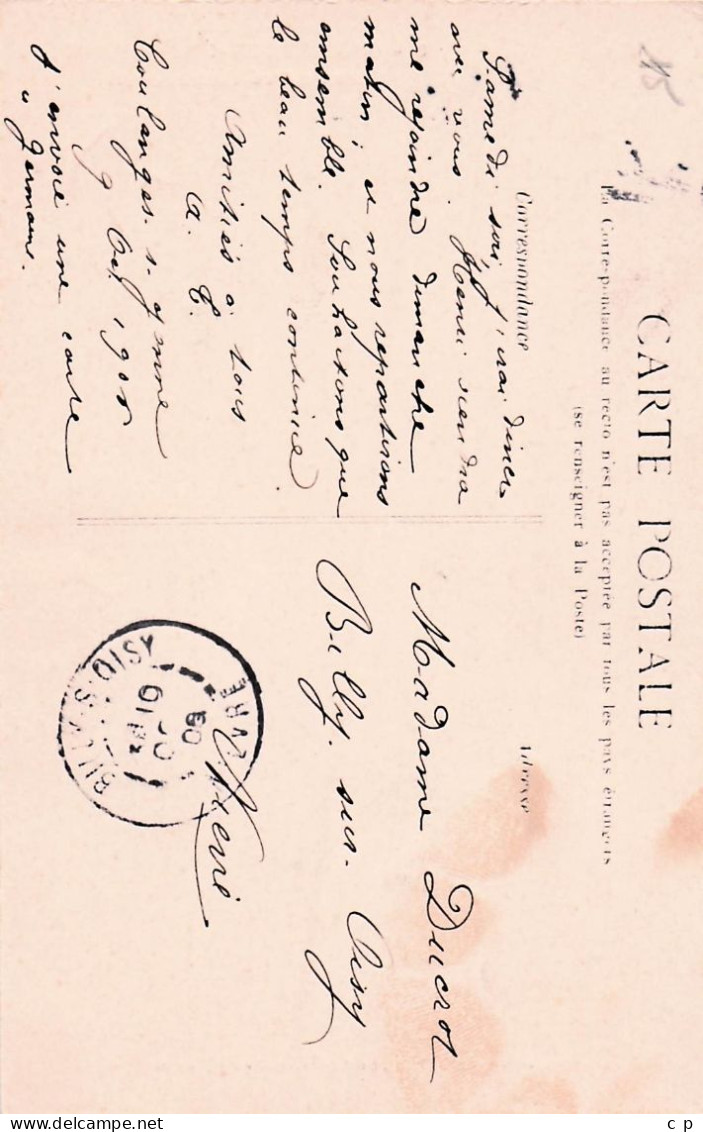 CARTE POSTALE
La Correspondance au recto n'est pas acceptée par tous les pays étrangers
(se renseigner à la Poste)
Correspondance
Samedi soir, j'irai diner
avec vous. Henri viendra
me rejoindre dimanche
matin, et nous repartirons
ensemble. Souhaitons que
le beau temps continue
Amitiés à tous
A. C.
Coulanges. s. yonne
9 Oct 1905
J'envoie une carte
à Germaine.
Adresse
Madame Ducrot
Billy. sur. Oisy
Nièvre
BILLY-S-OISY
NIÈVRE
cp